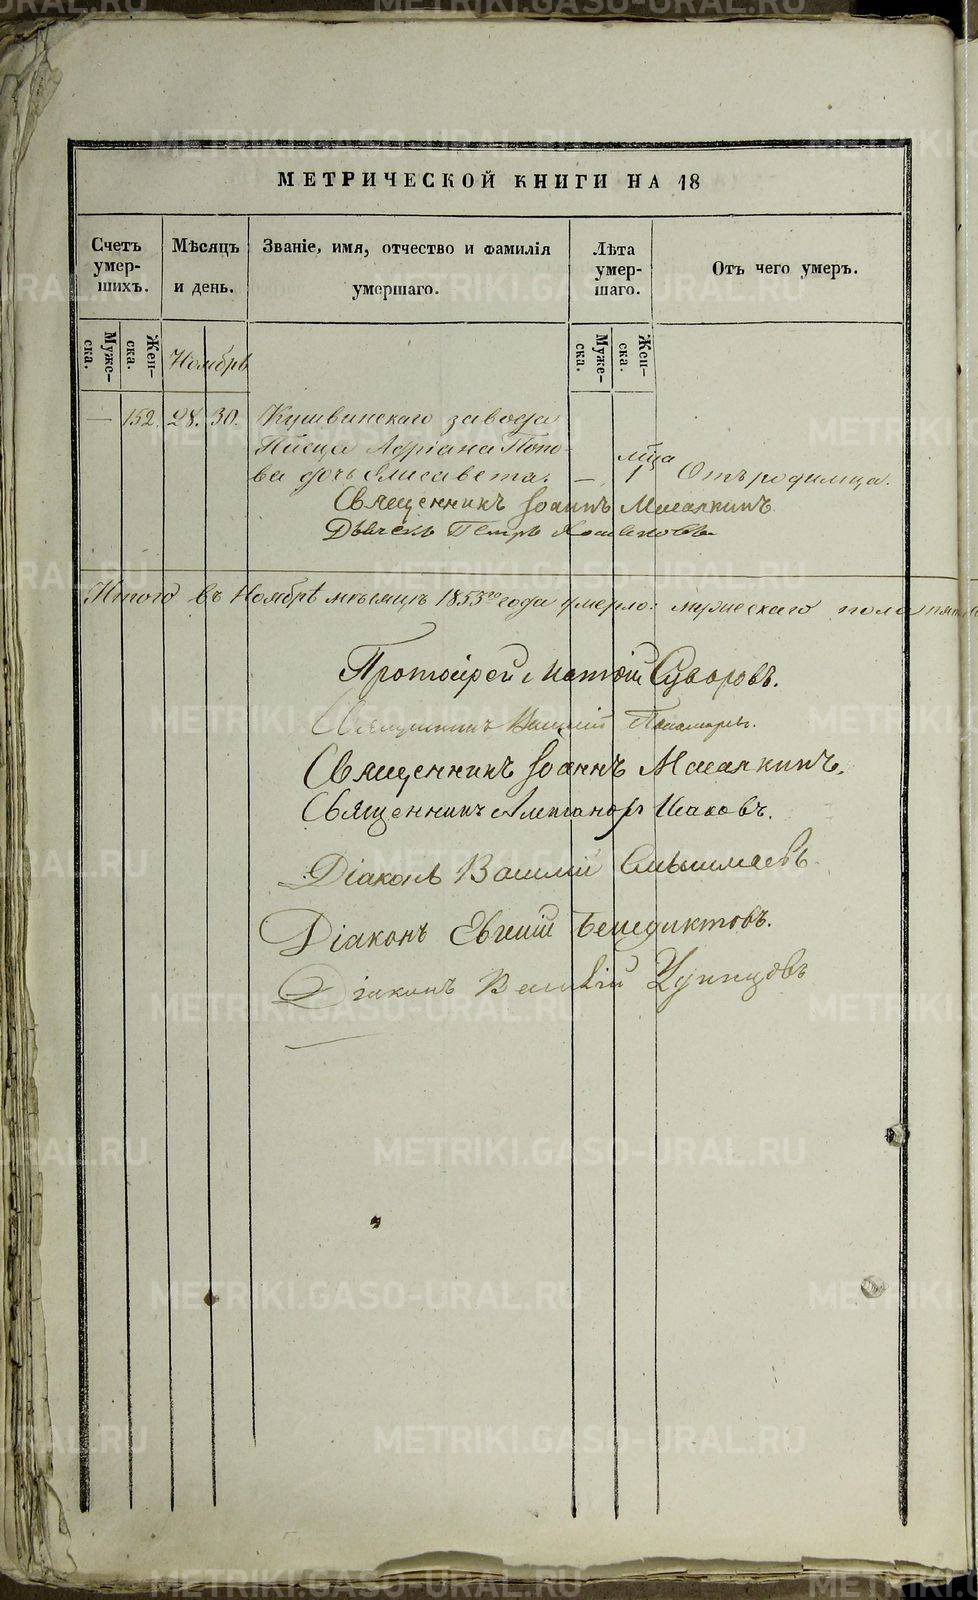 МЕТРИЧЕСКОЙ КНИГИ НА 18
Счетъ умер-шихъ.
Мѣсяцъ и день.
Званіе, имя, отчество и фамилія умершаго.
Лѣта умер-шаго.
Отъ чего умеръ.
Муже-ска.
Жен-ска.
Ноябрь
Муже-ска.
Жен-ска.
— 152. 28. 30. Кушвинскаго завода
Писца Адріана Попо-
ва дочь Елисавета. — 1 мца Отъ родимца.
Священникъ Іоаннъ
Дьячекъ Петръ
Итого въ Ноябрѣ мѣсяцѣ 1853го года умерло: мужескаго пола
Протоіерей Матѳій Суворовъ.
Священникъ Василій
Священникъ Іоаннъ
Священникъ Александръ Исаковъ.
Діаконъ Василій Смышляевъ
Діаконъ Евгеній Бенедиктовъ.
Діаконъ Василій
METRIKI.GASO-URAL.RU